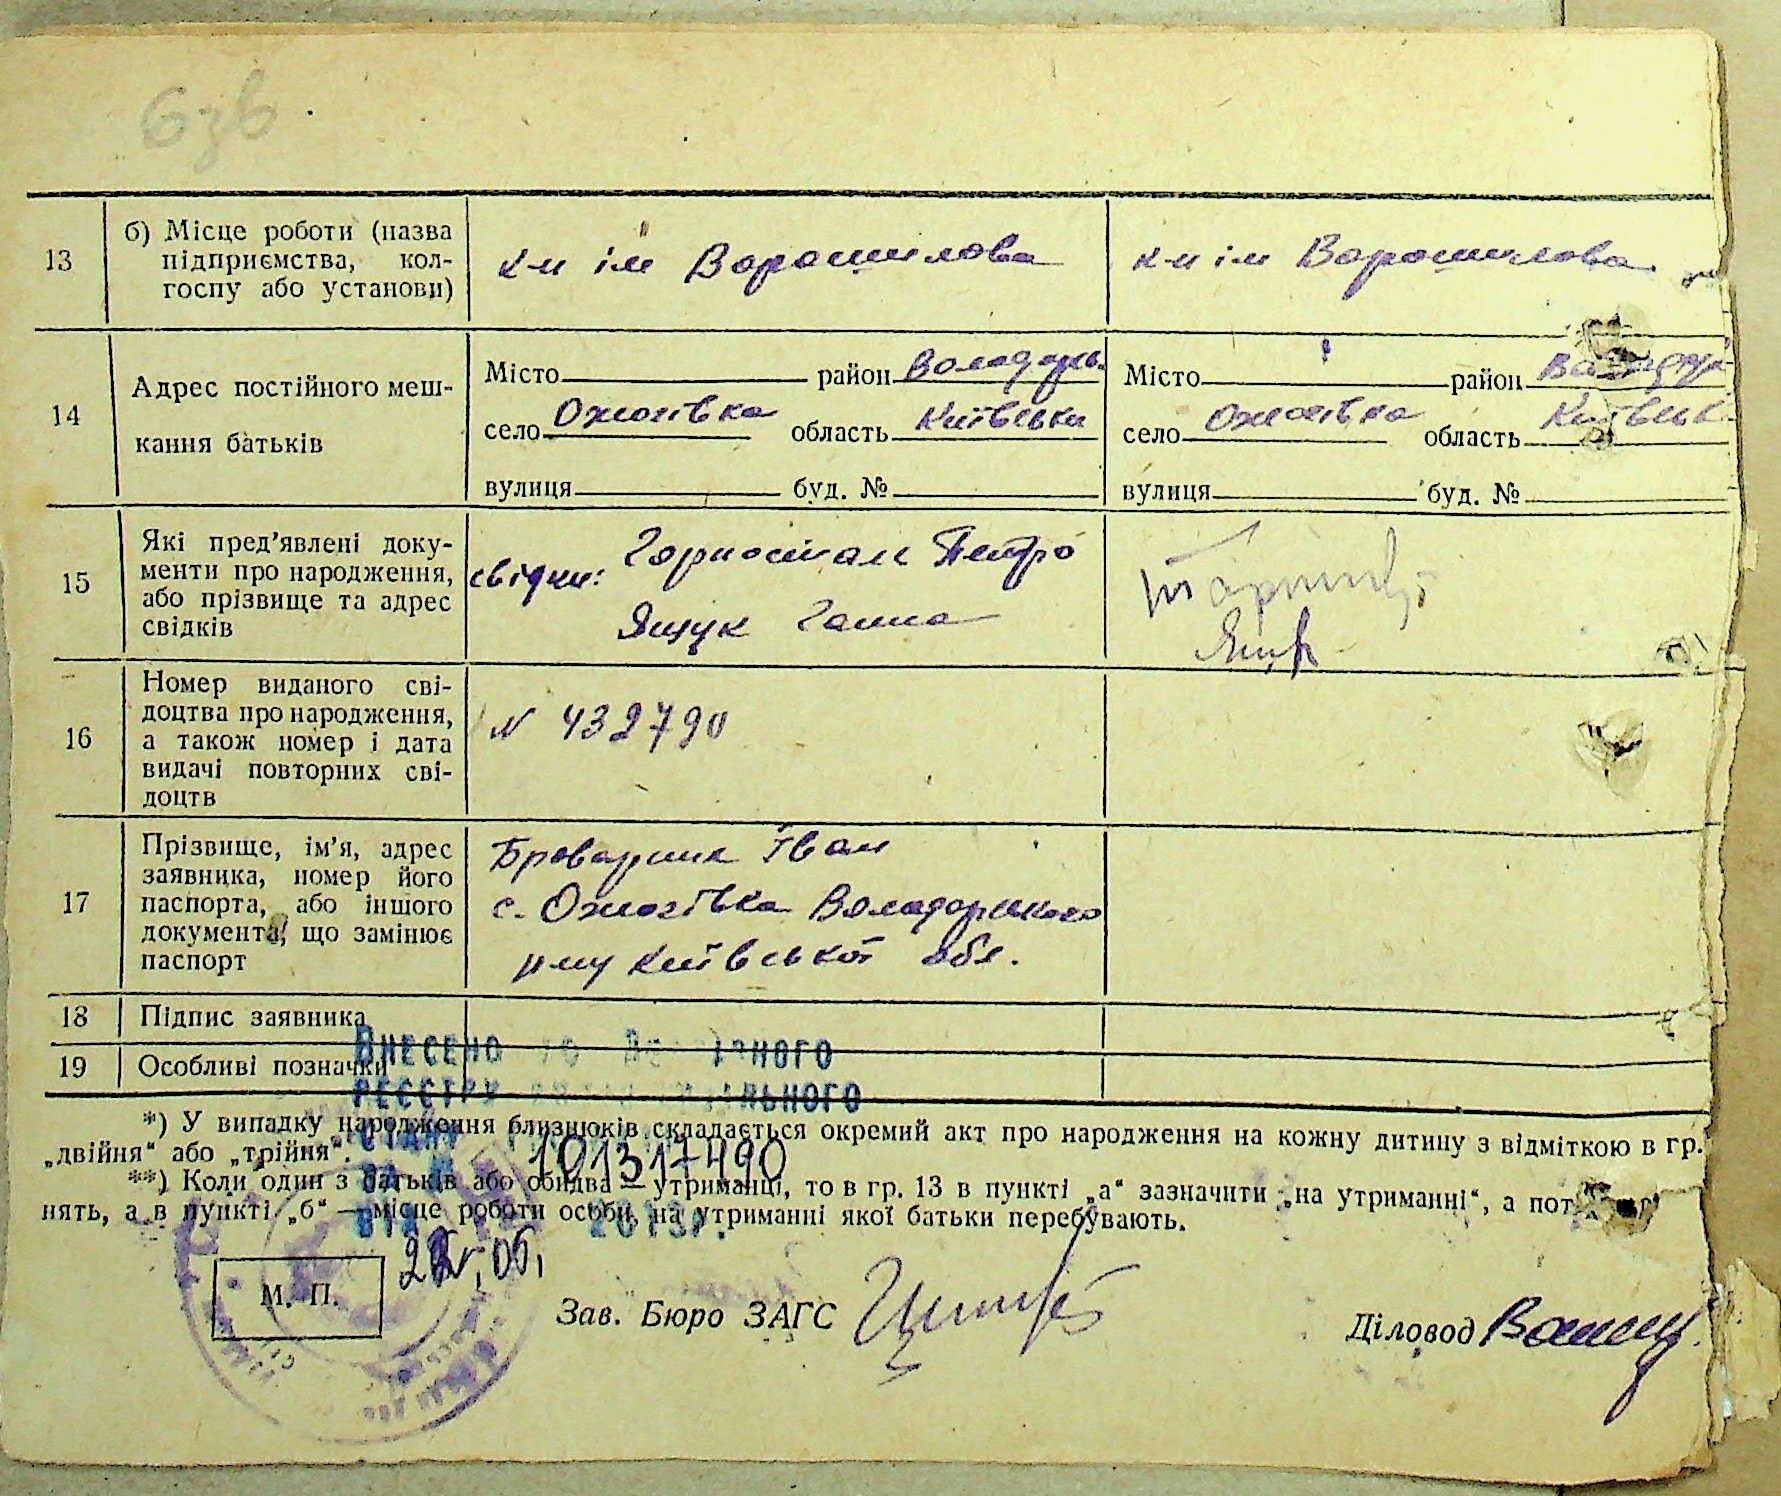 636
13
б) Місце роботи (назва
підприємства, кол-
госпу або установи)
к-п ім Ворошилова
к-п ім Ворошилова
14
Адрес постійного меш-
кання батьків
Місто район Володарс.
село Ожегівка область Київська
вулиця буд. №
Місто район
село Ожегівка область Київськ
вулиця буд. №
15
Які пред’явлені доку-
менти про народження,
або прізвище та адрес
свідків
свідки: Горностал Петро
Ящук Ганна
16
Номер виданого сві-
доцтва про народження,
а також номер і дата
видачі повторних сві-
доцтв
N 432790
17
Прізвище, ім’я, адрес
заявника, номер його
паспорта, або іншого
документа, що замінює
паспорт
Іван
с. Ожегівка Володарського
р-ну Київської обл.
18
Підпис заявника
19
Особливі позначки
Внесено до Державного
реєстру
стану
101317490
2013р.
*) У випадку народження близнюків складається окремий акт про народження на кожну дитину з відміткою в гр.
„двійня“ або „трійня“.
**) Коли один з батьків або обидва — утриманці, то в гр. 13 в пункті „а“ зазначити „на утриманні“, а пот
нять, а в пункті „б“ — місце роботи особи, на утриманні якої батьки перебувають.
М. П.
Зав. Бюро ЗАГС
Діловод